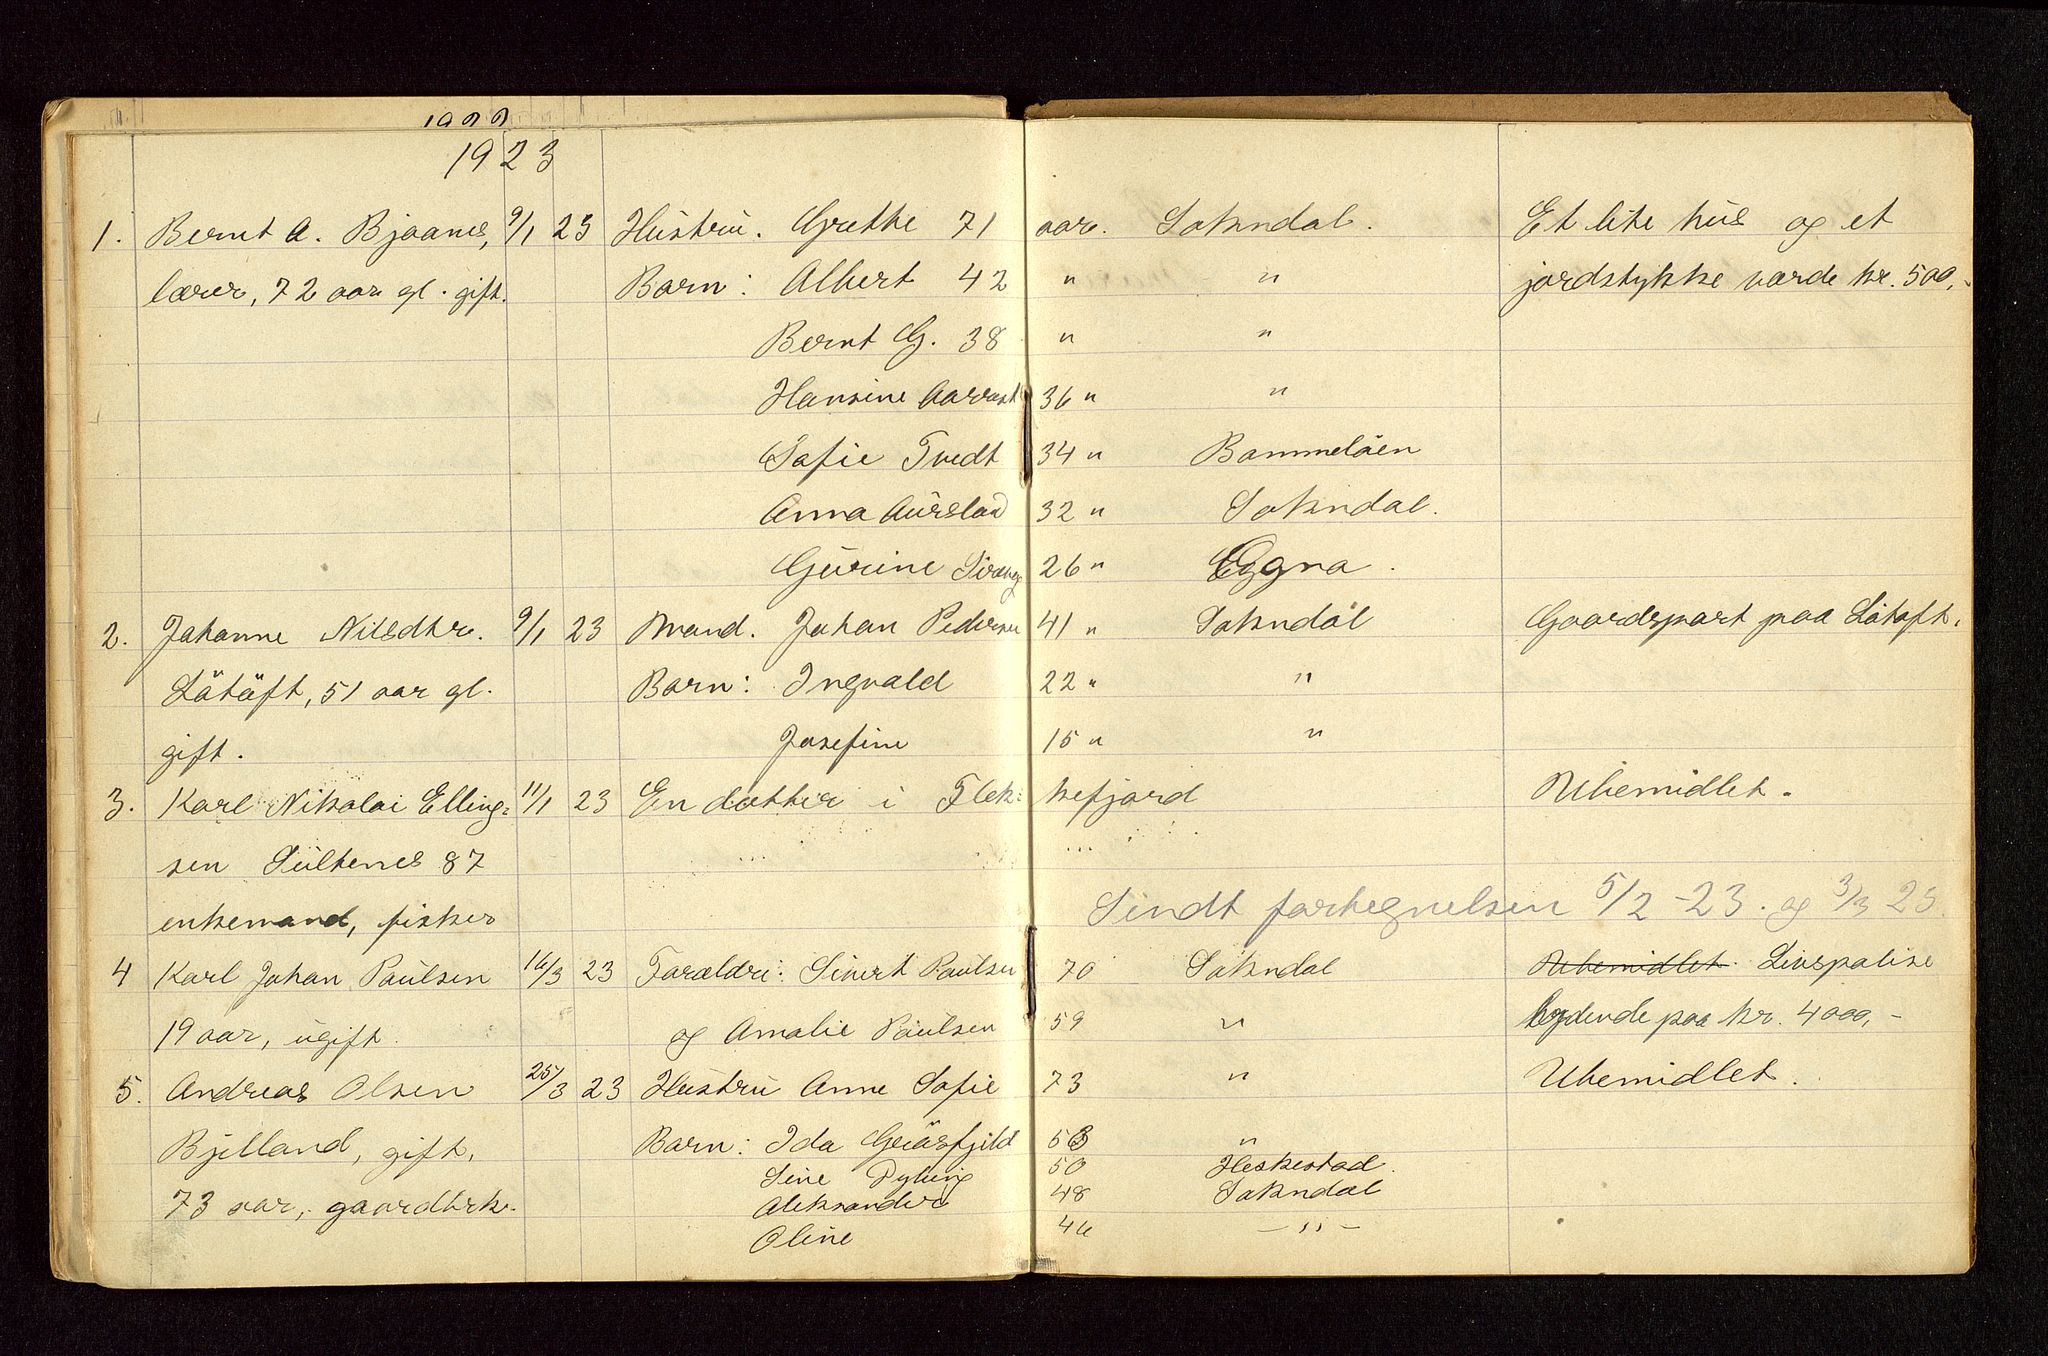 1923
1. Bernt A. Bjaanes, 9/1 23 Hustru. Grethe 71 aar. Sokndal. Et lite hus og et
lærer, 72 aar gl. gift. Barn: Albert 42 " " jordstykke værde kr. 500,-
Bernt G. 38 " "
Hansine Aarrast 36 " "
Sofie Tvedt 34 " Bommelöen
Anna Aurstad 32 " Sokndal.
Gurine 26 " Eggna.
2. Johanne Nilsdtr. 9/1 23 Mand. Johan Pedersen 41 " Sokndal Gaardspart paa Låtoft.
Låtåft, 51 aar gl. Barn: Ingvald 22 " "
gift. Josefine 15 " "
3. Karl Nikolai Elling- 11/1 23 En datter i Flek- kefjord Ubemidlet.
sen Sultenes 87
enkemand, fisker Sendt fortegnelsen 5/2-23. og 3/3 23.
4 Karl Johan Paulsen 16/3 23 Forældre: Sivert Paulsen 70 Sokndal Ubemidlet. Livspolise
19 aar, ugift. og Amalie Paulsen 59 " lydende paa kr. 4000,-
5. Andreas Olsen 25/3 23 Hustru Anne Sofie 73 " Ubemidlet.
Bjelland, gift, Barn: Ida 53 "
Sine Dyking 50 Heskestad.
73 aar, gaardbrker. Aleksander 48 Sokndal
Oline 46 - " -